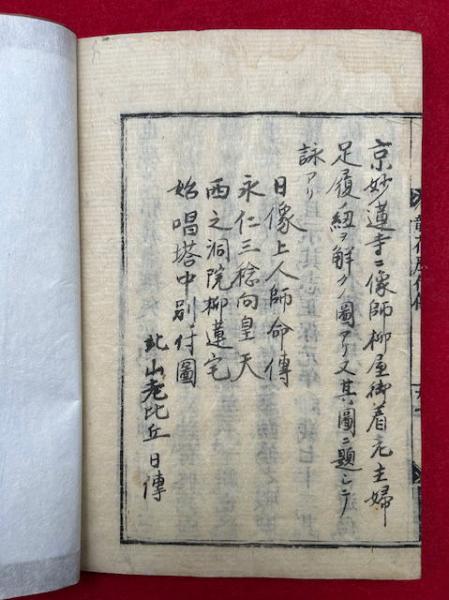 京妙蓮寺ニ像師柳屋御着元主婦
足履ノ紐ヲ解ク圖アリ又其圖ニ題シテ
詠アリ
日像上人師命傳
永仁三稔向皇天
西之洞院柳蓮宅
始唱塔中別付圖
北山老比丘日傳